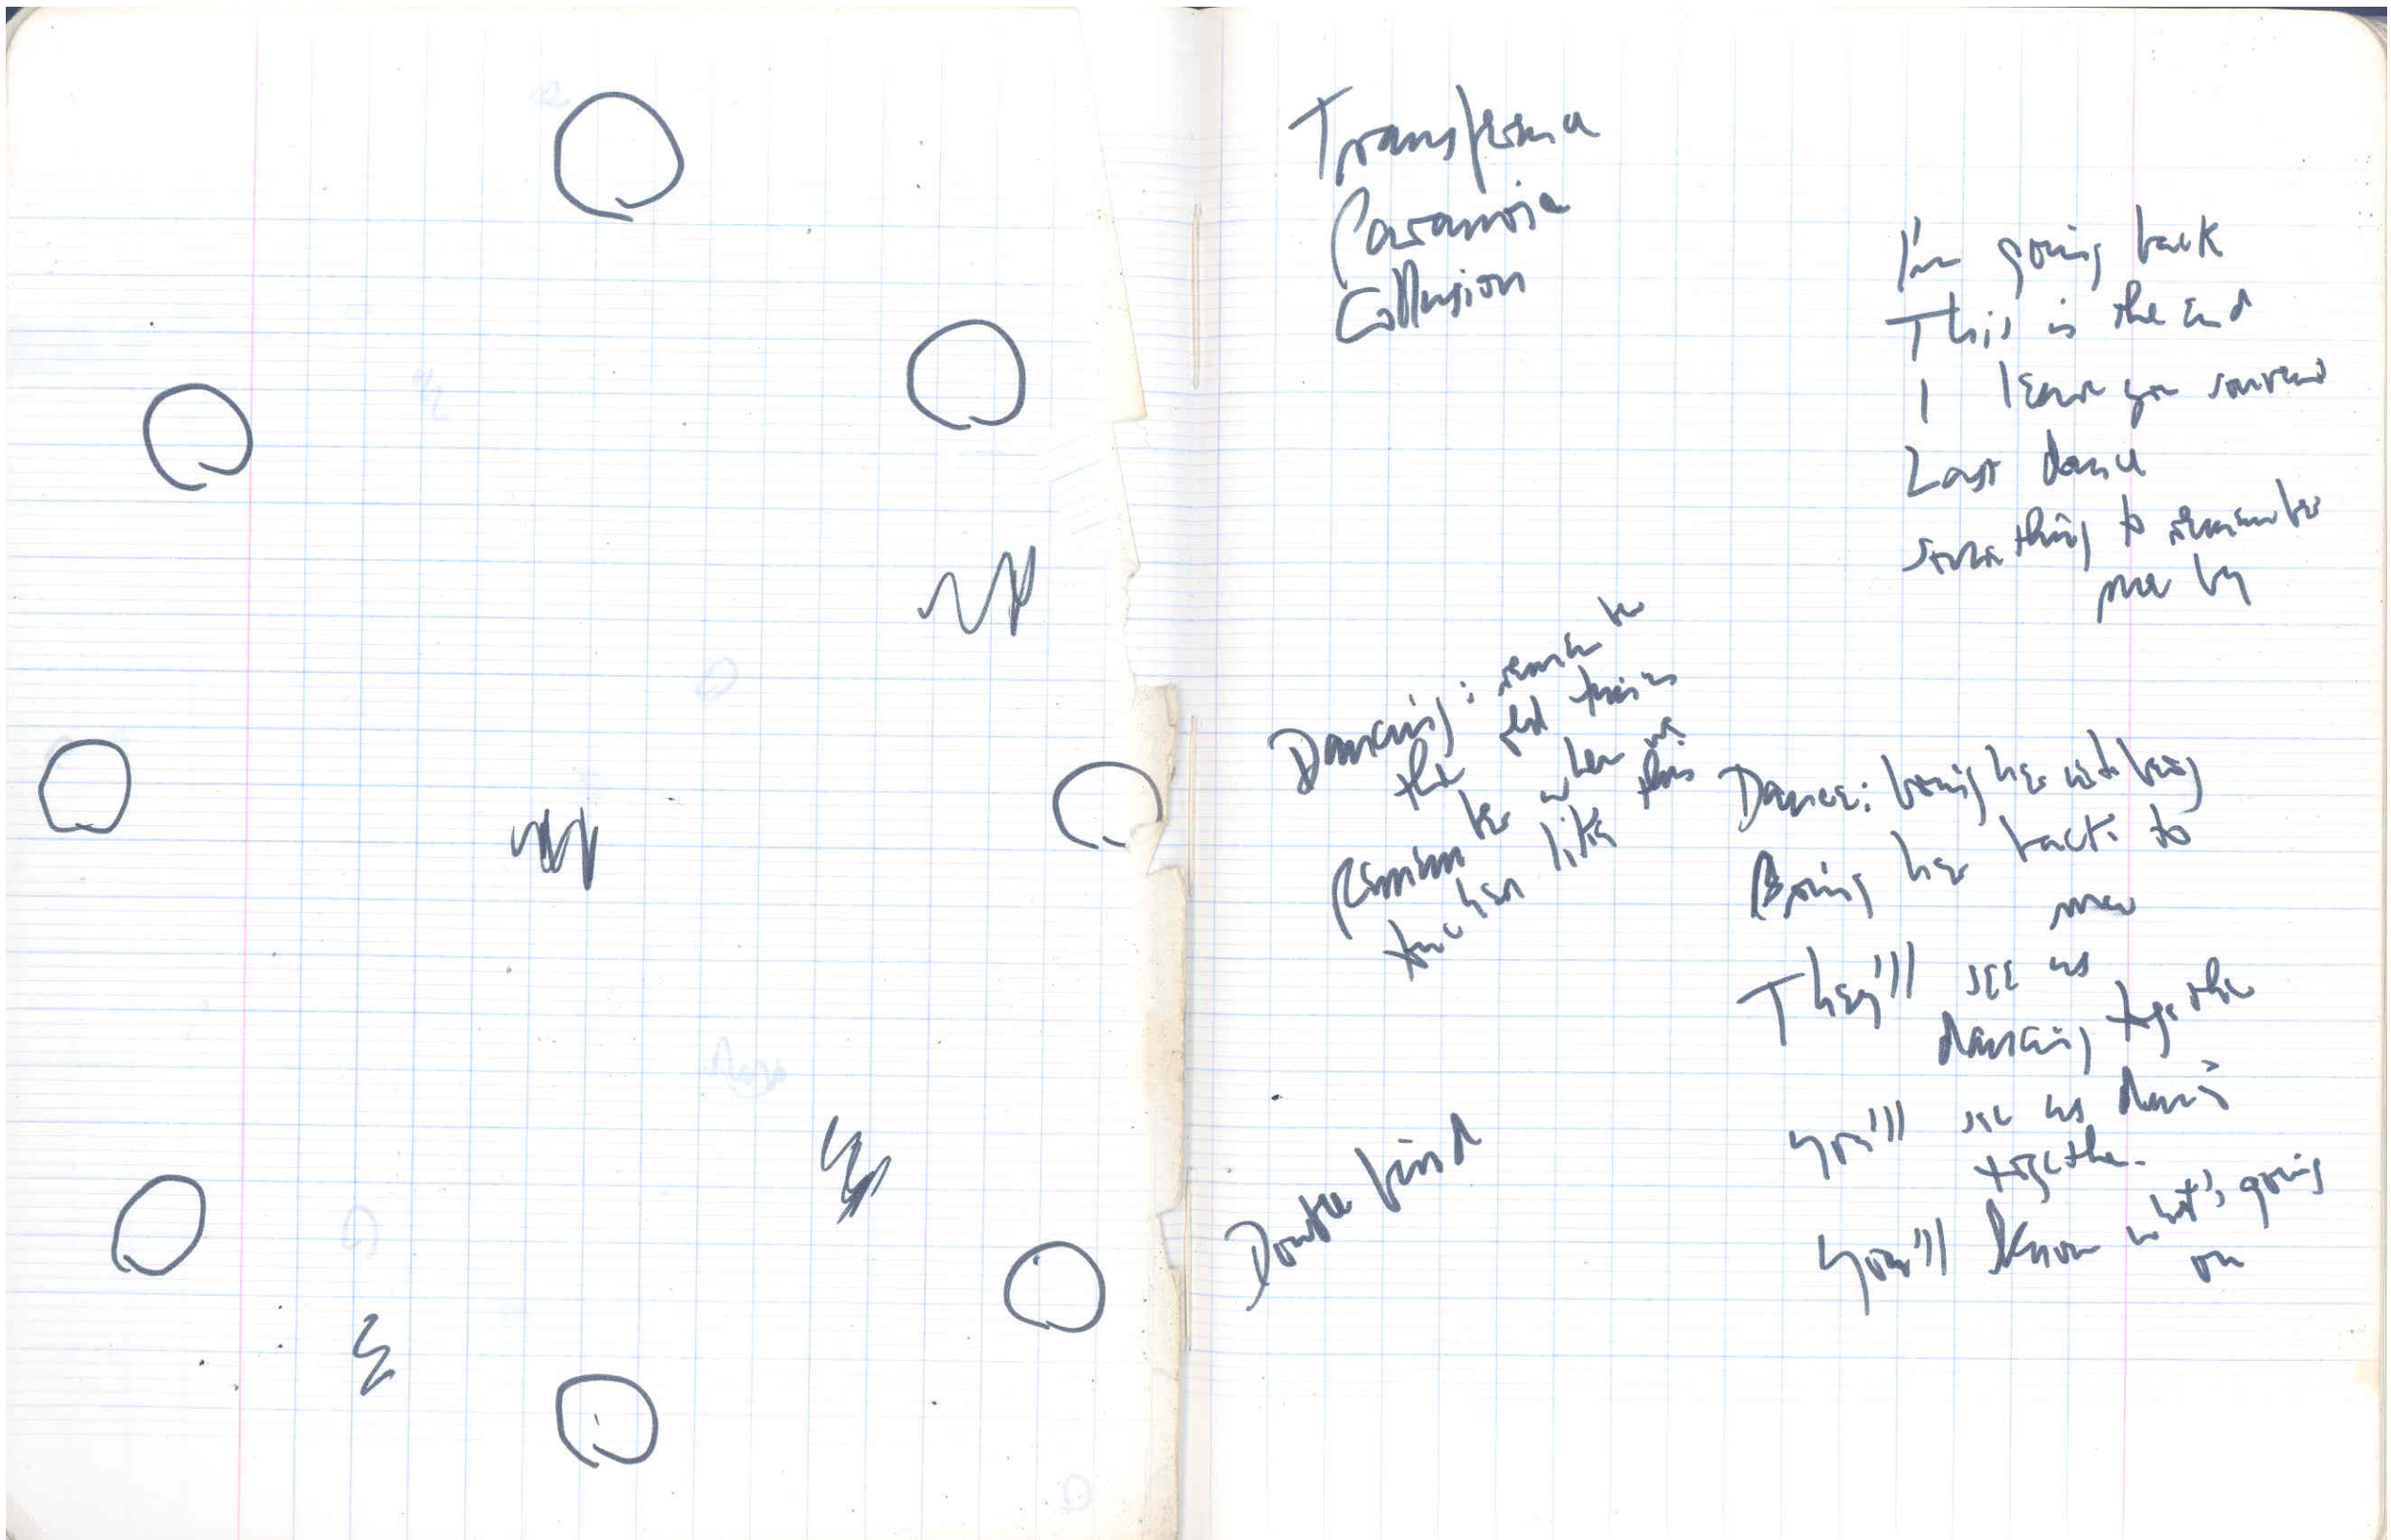 Transference
Paranoia
Collusion
I'm going back
This is the end
I leave you
Last dance
something to remember
me by
Dancing: remember
the old times
Remember when we
touch like this
Dance: bring her
Bring her back to
me
They'll see us
dancing together
You'll see us dancing
together.
You'll know what's going
on
Double bind